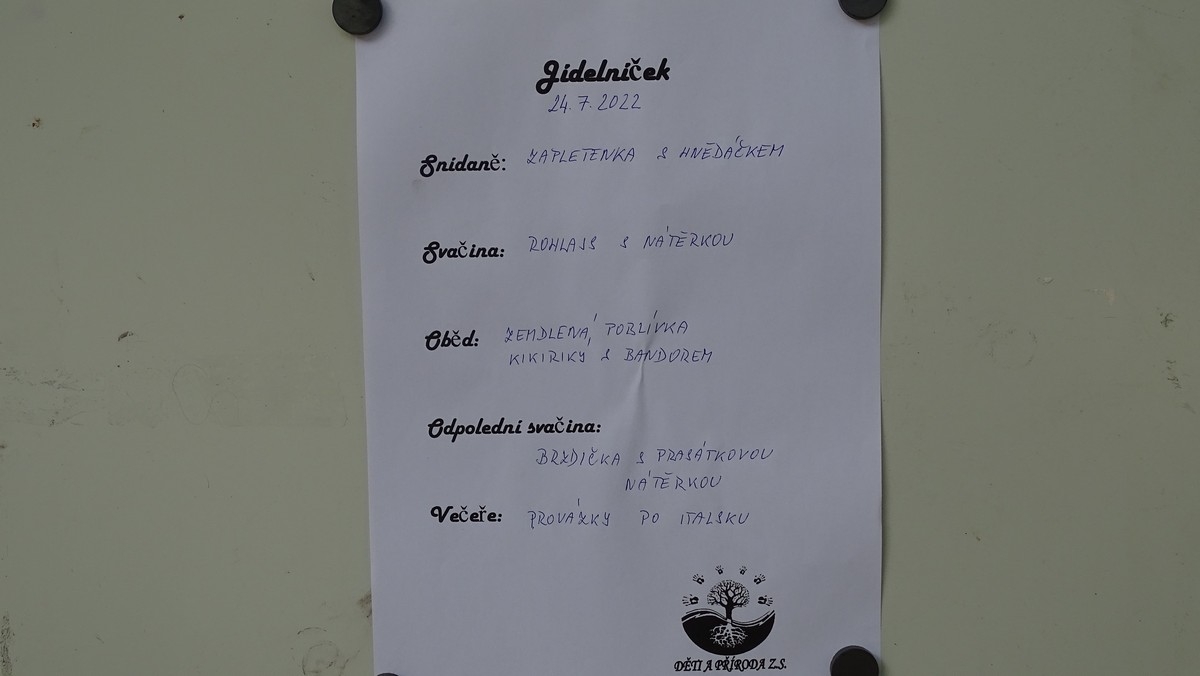 Jídelníček
24. 7. 2022
Snídaně: ZAPLETENKA S HNĚDÁČKEM
Svačina: ROHLASS S NÁTĚRKOU
Oběd: ZEMDLENÁ POBLÍVKA
KIKIRIKY S BANDOREM
Odpolední svačina:
BRZDIČKA S PRASÁTKOVOU
NÁTĚRKOU
Večeře: PROVÁZKY PO ITALSKU
DĚTI A PŘÍRODA Z.S.